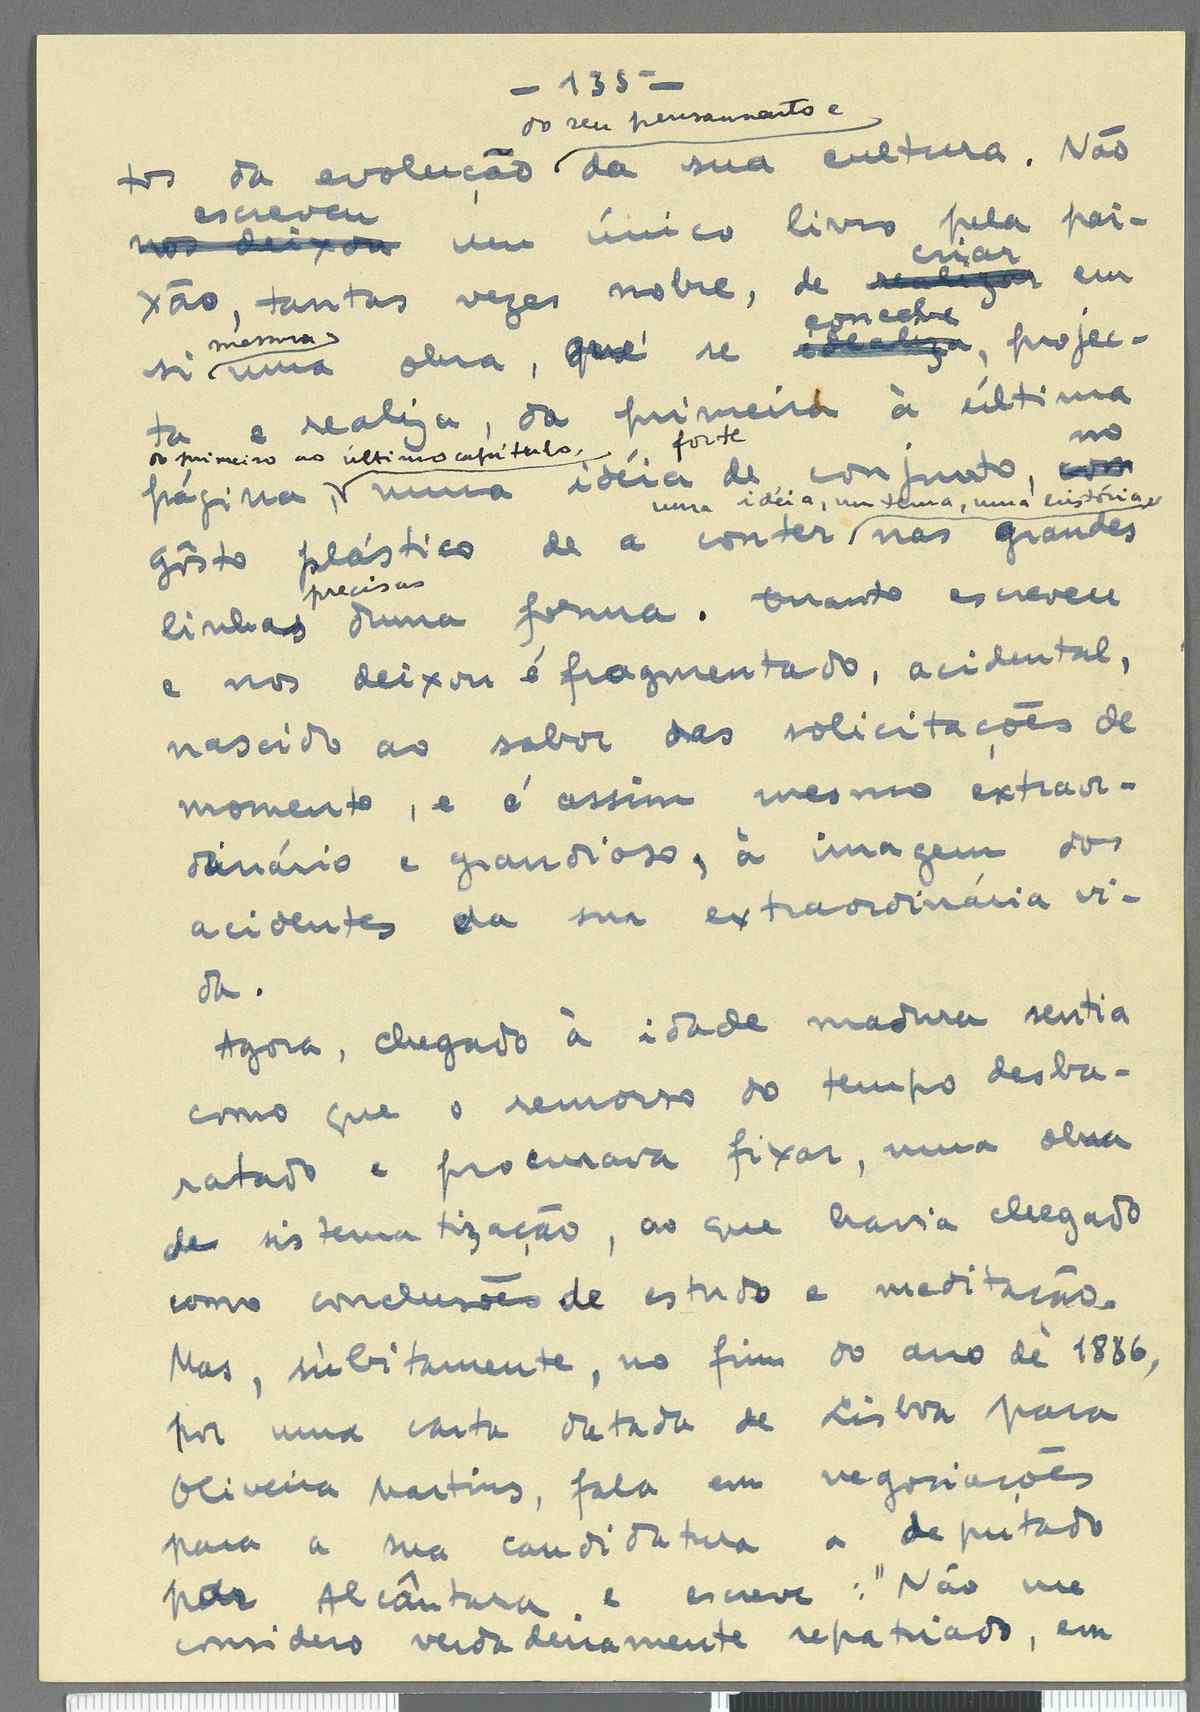 - 135 -
do seu pensamento e
tos da evolução da sua cultura. Não
escreveu
nos deixou um único livro pela pai-
criar
xão, tantas vezes nobre, de realizar em
mesma concebe
si uma obra, que se idealiza, projec-
ta e realiza, da primeira à última
do primeiro ao último capítulo, forte no
página, numa idéia de conjunto, com
uma idéia, um tema, uma história
gôsto plástico de a conter nas grandes
precisas
linhas duma forma. Quanto escreveu
e nos deixou é fragmentado, acidental,
nascido ao sabor das solicitações de
momento, e é assim mesmo extraor-
dinário e grandioso, à imagem dos
acidentes da sua extraordinária vi-
da.
Agora, chegado à idade madura sentia
como que o remorso do tempo desba-
ratado e procurava fixar, numa obra
de sistematização, ao que havia chegado
como conclusões de estudo e meditação.
Mas, sùbitamente, no fim do ano de 1886,
por uma carta datada de Lisboa para
Oliveira Martins, fala em negociações
para a sua candidatura a deputado
por Alcântara e escreve: "Não me
considero verdadeiramente repatriado, em